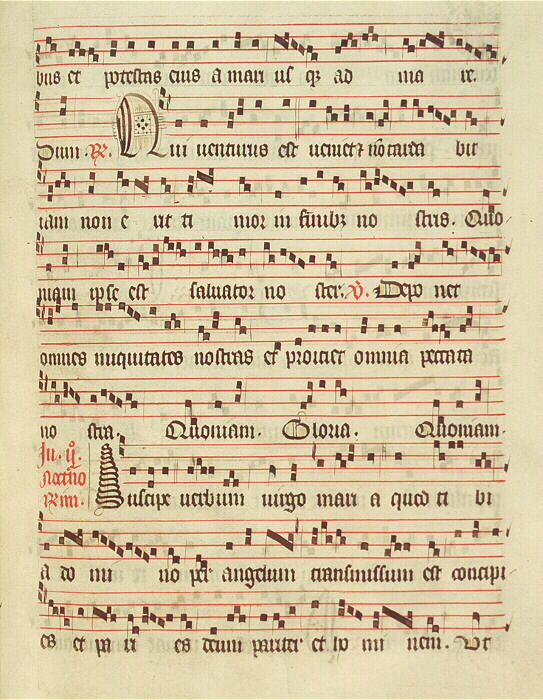 bus et potestas eius a mari us qz ad ma re.
Dum. R. Qui uenturus est ueniet z nō tarda bit
iam non e ut ti mor in finibz no stris. Quo
niam ipse est saluator no ster. V. Depo net
omnes iniquitates nostras et proiciet omnia peccata
no stra. Quoniam. Gloria. Quoniam.
In. ij. Noctno Rm. Suscipe uerbum uirgo mari a quod ti bi
a do mi no per angelum transmissum est concipi
es et pa ri es deum pariter et ho mi nem. Vt